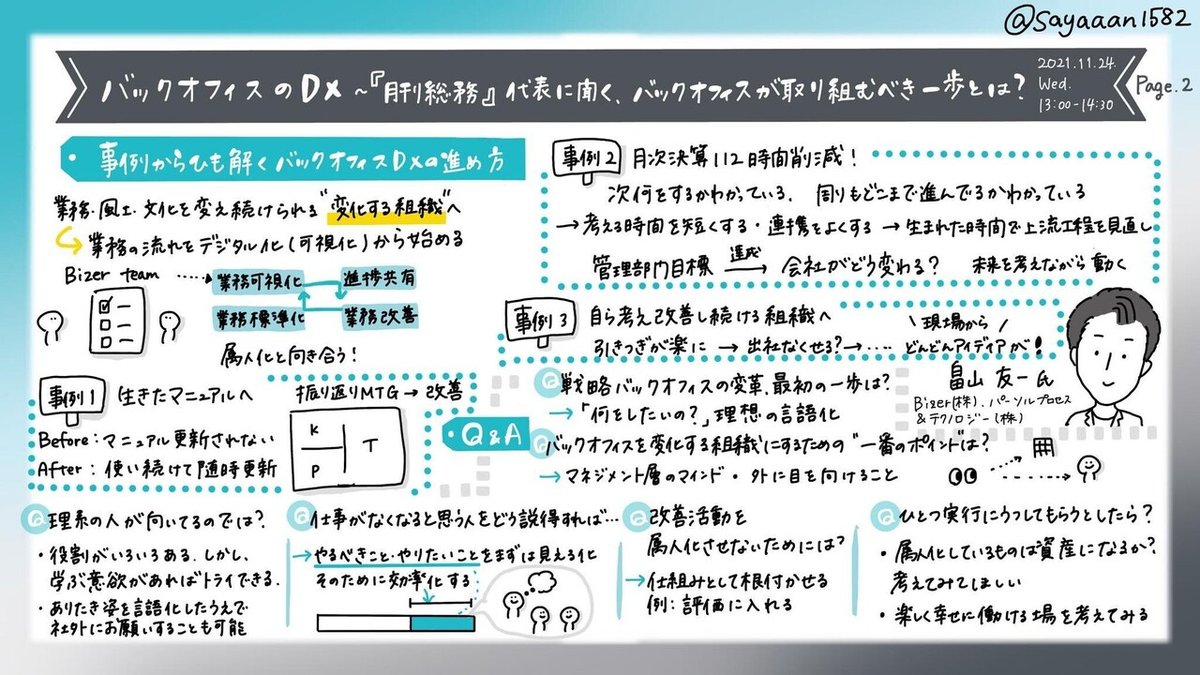 @Sayaaan1582
バックオフィスのDX~『月刊総務』代表に聞く、バックオフィスが取り組むべき一歩とは?
2021.11.24.
Wed.
13:00-14:30
Page.2
・事例からひも解くバックオフィスDXの進め方
業務・風土・文化を変え続けられる"変化する組織"へ
業務の流れをデジタル化(可視化)から始める
Bizer team
業務可視化
進捗共有
業務標準化
業務改善
属人化と向き合う!
事例1
生きたマニュアルへ
Before:マニュアル更新されない
After:使い続けて随時更新
振り返りMTG→改善
K
P
T
事例2
月次決算112時間削減!
次何をするかわかっている、周りもどこまで進んでるかわかっている
→考える時間を短くする・連携をよくする→生まれた時間で上流工程を見直し
管理部門目標
達成
→会社がどう変わる? 未来を考えながら動く
事例3
自ら考え改善し続ける組織へ
引きつぎが楽に→出社なくせる?→‥‥
\現場から/
どんどんアイディアが!
畠山 友一氏
Bizer(株)、パーソルプロセス
&テクノロジー(株)
・Q&A
Q戦略バックオフィスの変革、最初の一歩は?
→「何をしたいの?」理想の言語化
Qバックオフィスを"変化する組織"にするための"一番のポイント"は?
→マネジメント層のマインド・外に目を向けること
Q理系の人が向いてるのでは?
・役割がいろいろある。しかし、
学ぶ意欲があればトライできる。
・ありたき姿を言語化したうえで
社外にお願いすることも可能
Q仕事がなくなると思う人をどう説得すれば…
→やるべきこと・やりたいことをまずは見える化
そのために効率化する
Q改善活動を
属人化させないためには?
→仕組みとして根付かせる
例:評価に入れる
Qひとつ実行にうつしてもらうとしたら?
・属人化しているものは資産になるか?
考えてみてほしい
・楽しく幸せに働ける場を考えてみる